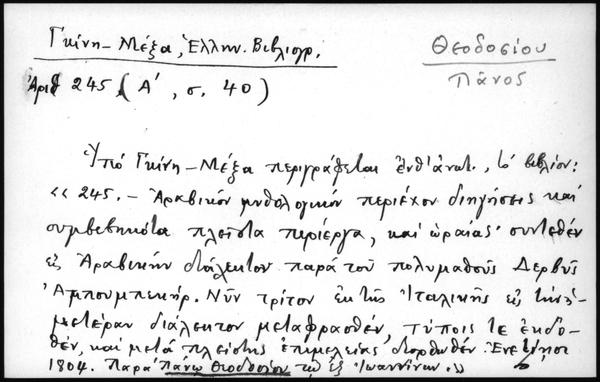 Γκίνη-Μέξα, Ἑλλην. Βιβλιογρ.
Θεοδοσίου
Πάνος
Ἀριθ 245 (Α', σ. 40)
Ὑπό Γκίνη-Μέξα περιγράφεται ἐνθ' ἀνωτ., τό βιβλίον:
«245. - Ἀραβικόν μυθολογικόν περιέχον διηγήσεις καί
συμβεβηκότα πλεῖστα περίεργα, καί ὡραῖα· συντεθέν
εἰς Ἀραβικήν διάλεκτον παρά τοῦ πολυμαθοῦς Δερβύς
Ἀμπουμπεκήρ. Νῦν τρίτον ἐκ τῆς Ἰταλικῆς εἰς τήν ἡ-
μετέραν διάλεκτον μεταφρασθέν, τύποις τε ἐκδο-
θέν, καί μετά πλείστης ἐπιμελείας διορθωθέν. Ἐνετίησι
1804. Παρά Πάνῳ Θεοδοσίου τῷ ἐξ Ἰωαννίνων.»